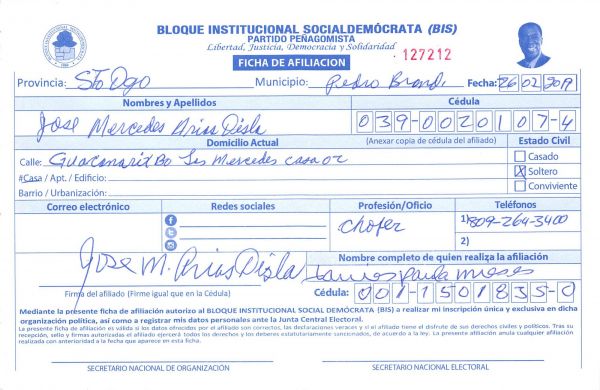 BLOQUE INSTITUCIONAL SOCIALDEMÓCRATA (BIS)
PARTIDO PEÑAGOMISTA
Libertad, Justicia, Democracia y Solidaridad
127212
FICHA DE AFILIACION
Provincia: Sto Dgo Municipio: Pedro Brand Fecha: 26 02 2019
Nombres y Apellidos Cédula
Jose Mercedes Arias Disla 039-0020107-4
Domicilio Actual (Anexar copia de cédula del afiliado) Estado Civil
Calle: Guacanarid Bo Las Mercedes casa 02 Casado
#Casa / Apt. / Edificio: X Soltero
Barrio / Urbanización: Conviviente
Correo electrónico Redes sociales Profesión/Oficio Teléfonos
chofer 1) 809-264-3400
2)
Jose M. Arias Disla Nombre completo de quien realiza la afiliación
Firma del afiliado (Firme igual que en la Cédula) Cédula: 001-1501835-0
Mediante la presente ficha de afiliación autorizo al BLOQUE INSTITUCIONAL SOCIAL DEMÓCRATA (BIS) a realizar mi inscripción única y exclusiva en dicha
organización política, así como a registrar mis datos personales ante la Junta Central Electoral.
La presente ficha de afiliación es válida si los datos ofrecidos por el afiliado son correctos, las declaraciones veraces y si el afiliado tiene el disfrute de sus derechos civiles y políticos. Tras su
recepción, sello y firmas autorizadas el afiliado ejercerá todos los derechos y los deberes estatutariamente sancionados, de acuerdo a la ley. La presente afiliación anula cualquier afiliación
realizada con anterioridad a la fecha que aparece en esta ficha.
SECRETARIO NACIONAL DE ORGANIZACIÓN SECRETARIO NACIONAL ELECTORAL